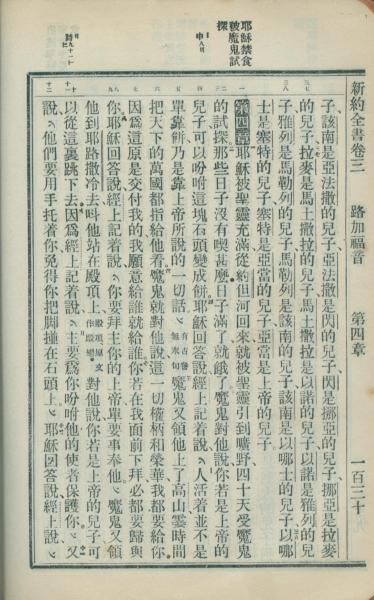 新約全書卷三 路加福音 第四章 一百三十
子該南是亞法撒的兒子亞法撒是閃的兒子閃是挪亞的兒子挪亞是拉麥
的兒子拉麥是馬土撒拉的兒子馬土撒拉是以諾的兒子以諾是雅列的兒
子雅列是馬勒列的兒子馬勒列是該南的兒子該南是以哪士的兒子以哪
士是塞特的兒子塞特是亞當的兒子亞當是上帝的兒子
第四章 耶穌被聖靈充滿從約但河回來就被聖靈引到曠野四十天受魔鬼
的試探那些日子沒有喫甚麼日子滿了就餓了魔鬼對他說你若是上帝的
兒子可以吩咐這塊石頭變成餅耶穌回答說經上記着說人活着並不是
單靠餅乃是靠上帝所說的一切話 有古卷無末句 魔鬼又領他上了高山霎時間
把天下的萬國都指給他看魔鬼就對他說這一切權柄和榮華我都要給你
因爲這原是交付我的我願意給誰就給誰你若在我面前下拜必都要歸與
你耶穌回答說經上記着說你要拜主你的上帝單要事奉他魔鬼又領
他到耶路撒冷去呌他站在殿頂上 殿頂原文作殿翅 對他說你若是上帝的兒子可
以從這裏跳下去因爲經上記着說主要爲你吩咐他的使者保護你又
說他們要用手托着你免得你把脚撞在石頭上耶穌回答說經上說
耶穌禁食
被魔鬼試
探
申八
詩九十一